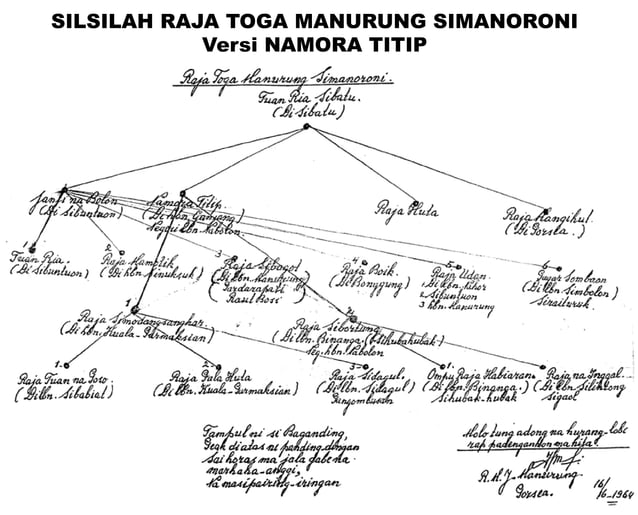 SILSILAH RAJA TOGA MANURUNG SIMANORONI
Versi NAMORA TITIP
Raja Toga Manurung Simanoroni.
Tuan Ria Sibatu.
(Di Sibatu)
Janji na Bolon
(Di Sibuntuon)
Namora Titip
(Di hbn. Ganjang)
lbn. Nabolon
Raja Huta
Raja Hangikul.
(Di Porsea.)
1. Tuan Ria.
(Di Sibuntuon)
2. Raja Mamatik
(Di lbn. Sinuksuk)
3 Raja Sibagot
(Di lbn. Manurung)
Pardarapati
Raut Bosi
4 Raja Boik.
(Di Bonggung)
5. Raja Udan.
1. Di lbn. Nahor
2. Sibuntuon
3 hbn. Manurung
6- Pagar Sombaon
(Di lbn. Simbolon)
Siraituruk.
1 Raja Simodangsangkar.
(Di hbn. Kuala-Parmaksian)
2. Raja Sibortung
(Di lbn. Binanga. (Sihubakubak)
lbn. Nabolon
1. Raja Tuan na Poso
(Di lbn. Sibabiat)
2- Raja Pala Huta
(Di lbn. Kuala-Parmaksian)
3- Raja Sidagul.
(Di lbn. Sidagul)
Pangombusan
1. Ompu Raja Habiaran.
(Di lbn. Binanga.)
Sihubak-hubak
Raja na Inggal.
(Di lbn. Silintong
Sigaol
Tampul ni si Baganding,
Pegk di atas ni pahding-dingan
Sai horas ma jala gabe na
marhaha-anggi,
Na masipairing-iringan
Molo tung adong na hurang-lobe
rap padengganhon ma hita.
R.H.J- Manurung
Porsea. 16/6-1964